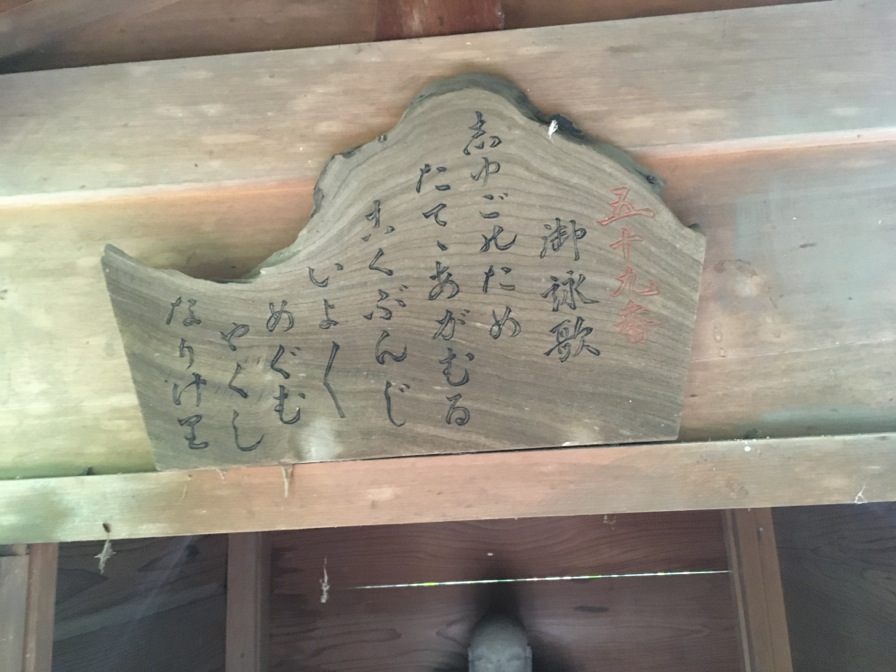 五十九番
御詠歌
志ゆごのため
たてゝあがむる
こくぶんじ
いよ〱
めぐむ
やくし
なりけり